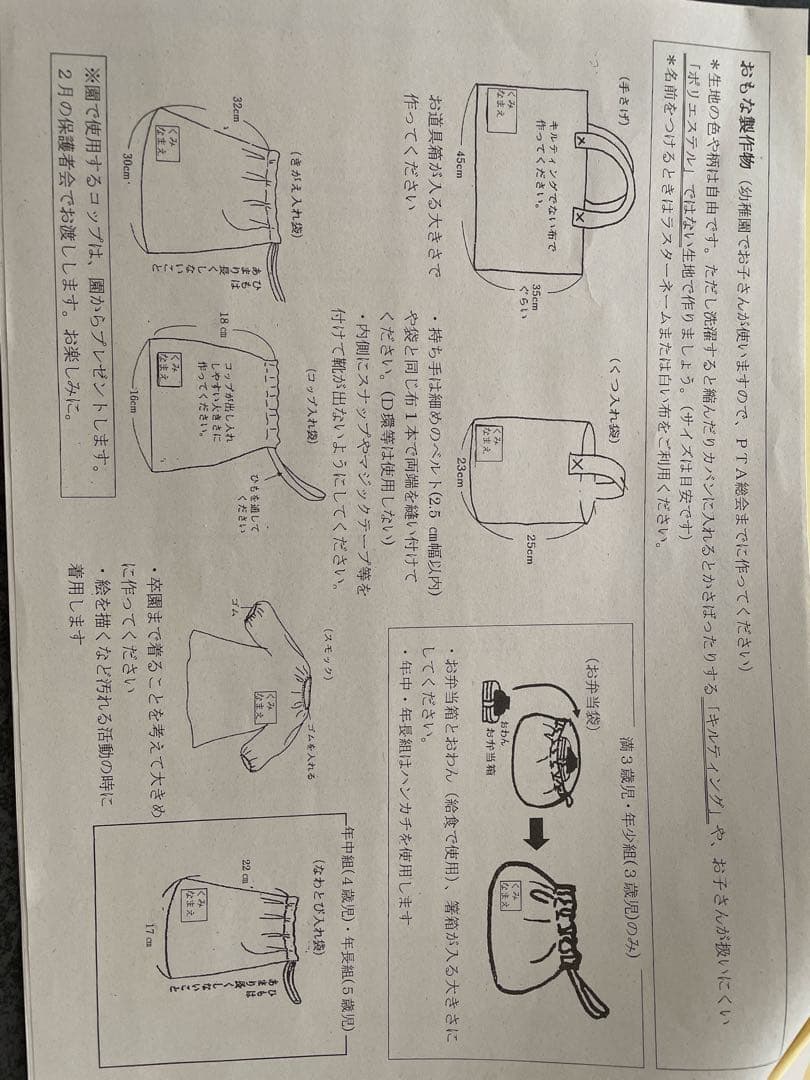 おもな製作物（幼稚園でお子さんが使いますので、ＰＴＡ総会までに作ってください）
＊生地の色や柄は自由です。ただし洗濯すると縮んだりカバンに入れるとかさばったりする「キルティング」や、お子さんが扱いにくい
「ポリエステル」ではない生地で作りましょう。（サイズは目安です）
＊名前をつけるときはラスターネームまたは白い布をご利用ください。
（手さげ）
キルティングでない布で
作ってください。
くみ
なまえ
35cm
ぐらい
45cm
お道具箱が入る大きさで
作ってください
（くつ入れ袋）
くみ
なまえ
25cm
23cm
・持ち手は細めのベルト(2.5 ㎝幅以内)
や袋と同じ布１本で両端を縫い付けて
ください。（Ｄ環等は使用しない）
・内側にスナップやマジックテープ等を
付けて靴が出ないようにしてください。
満３歳児・年少組(３歳児)のみ
（お弁当袋）
おわん
お弁当箱
くみ
なまえ
・お弁当箱とおわん（給食で使用）、箸箱が入る大きさに
してください。
・年中・年長組はハンカチを使用します
（きがえ入れ袋）
32cm
くみ
なまえ
30cm
ひもは
あまり長く
しないこと
（コップ入れ袋）
18 ㎝
くみ
なまえ
コップが出し入れ
しやすい大きさに
作ってください。
16cm
ひもを通して
ください
（スモック）
ゴム
ゴムを入れる
くみ
なまえ
・卒園まで着ることを考えて大きめ
に作ってください
・絵を描くなど汚れる活動の時に
着用します
年中組(４歳児)・年長組(５歳児)
（なわとび入れ袋）
22 ㎝
くみ
なまえ
17 ㎝
ひもは
あまり長く
しないこと
※園で使用するコップは、園からプレゼントします。
２月の保護者会でお渡しします。お楽しみに。